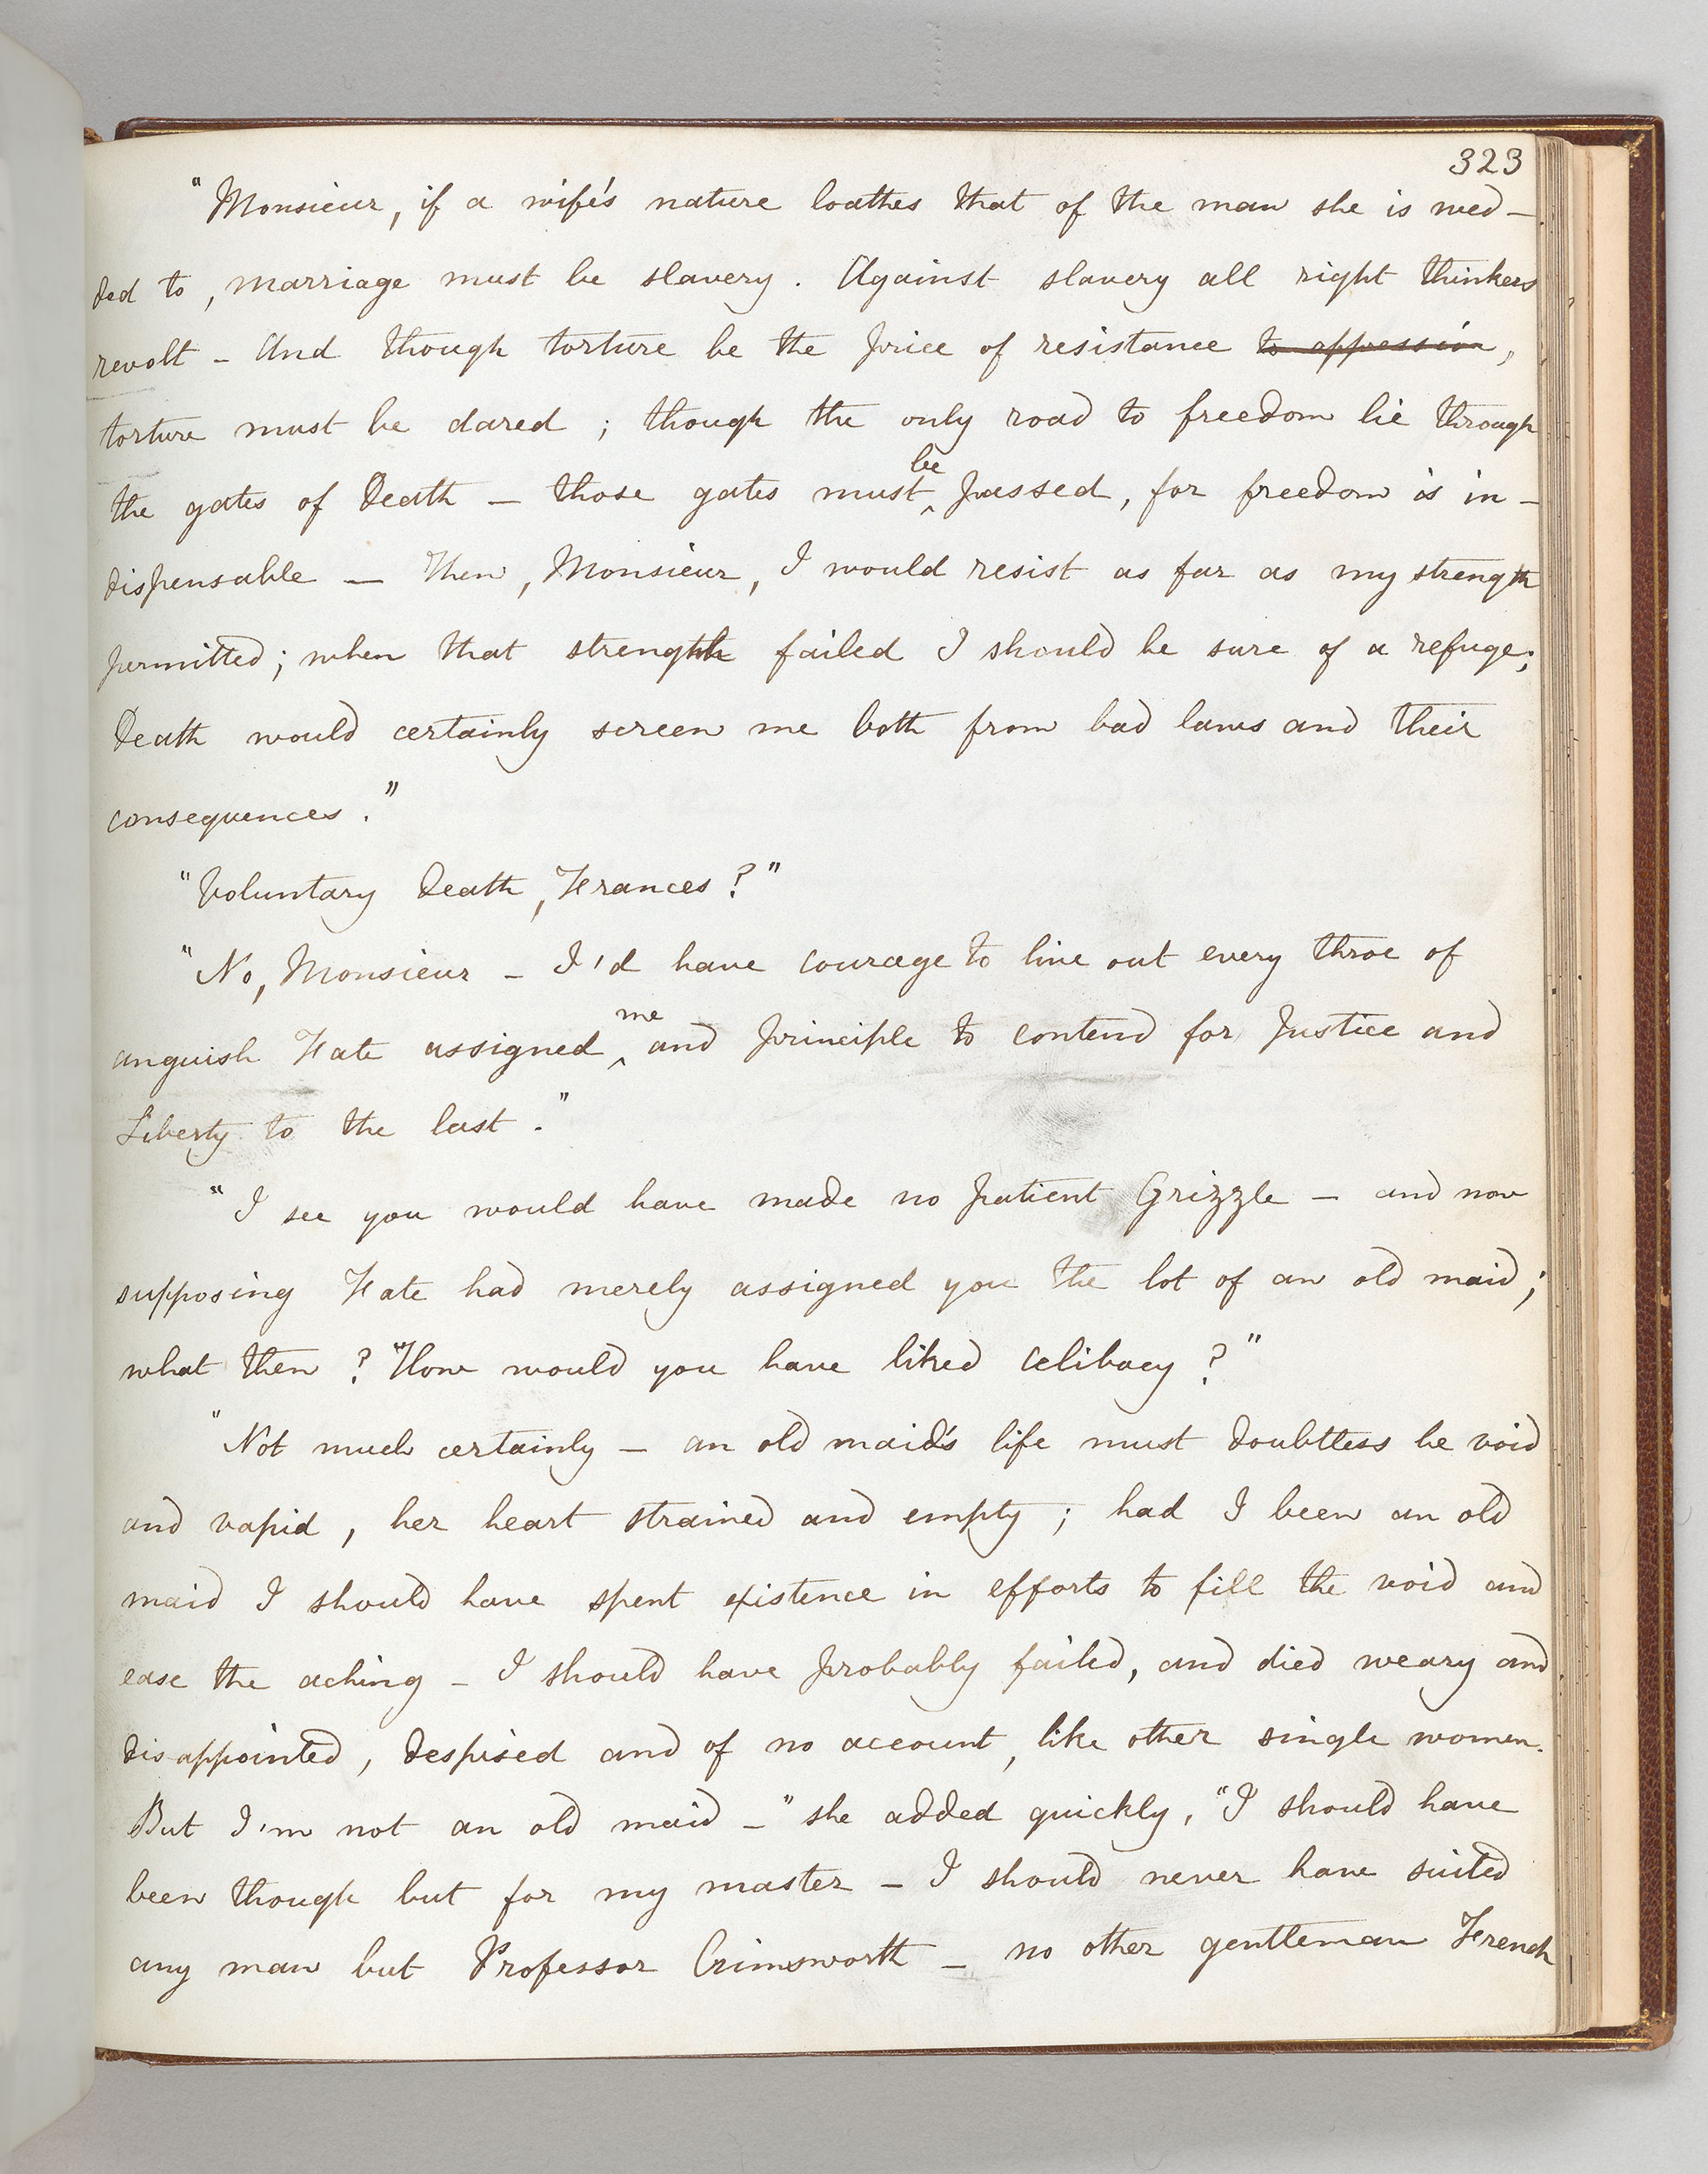 323
"Monsieur, if a wife's nature loathes that of the man she is wed-
ded to, marriage must be slavery. Against slavery all right thinkers
revolt - And though torture be the price of resistance to oppression,
torture must be dared; though the only road to freedom lie through
the gates of Death - those gates must be passed, for freedom is in-
dispensable - Then, Monsieur, I would resist as far as my strength
permitted; when that strength failed I should be sure of a refuge;
Death would certainly screen me both from bad laws and their
consequences."
"Voluntary Death, Frances?"
"No, Monsieur - I'd have courage to live out every throe of
anguish Fate assigned me and principle to contend for Justice and
Liberty to the last."
"I see you would have made no patient Grizzle - and now
supposing Fate had merely assigned you the lot of an old maid;
what then? "How would you have liked celibacy?"
"Not much certainly - an old maid's life must doubtless be void
and vapid, her heart strained and empty; had I been an old
maid I should have spent existence in efforts to fill the void and
ease the aching - I should have probably failed, and died weary and
disappointed, despised and of no account, like other single women.
But I'm not an old maid -" she added quickly, "I should have
been though but for my master - I should never have suited
any man but Professor Crimsworth - no other gentleman French